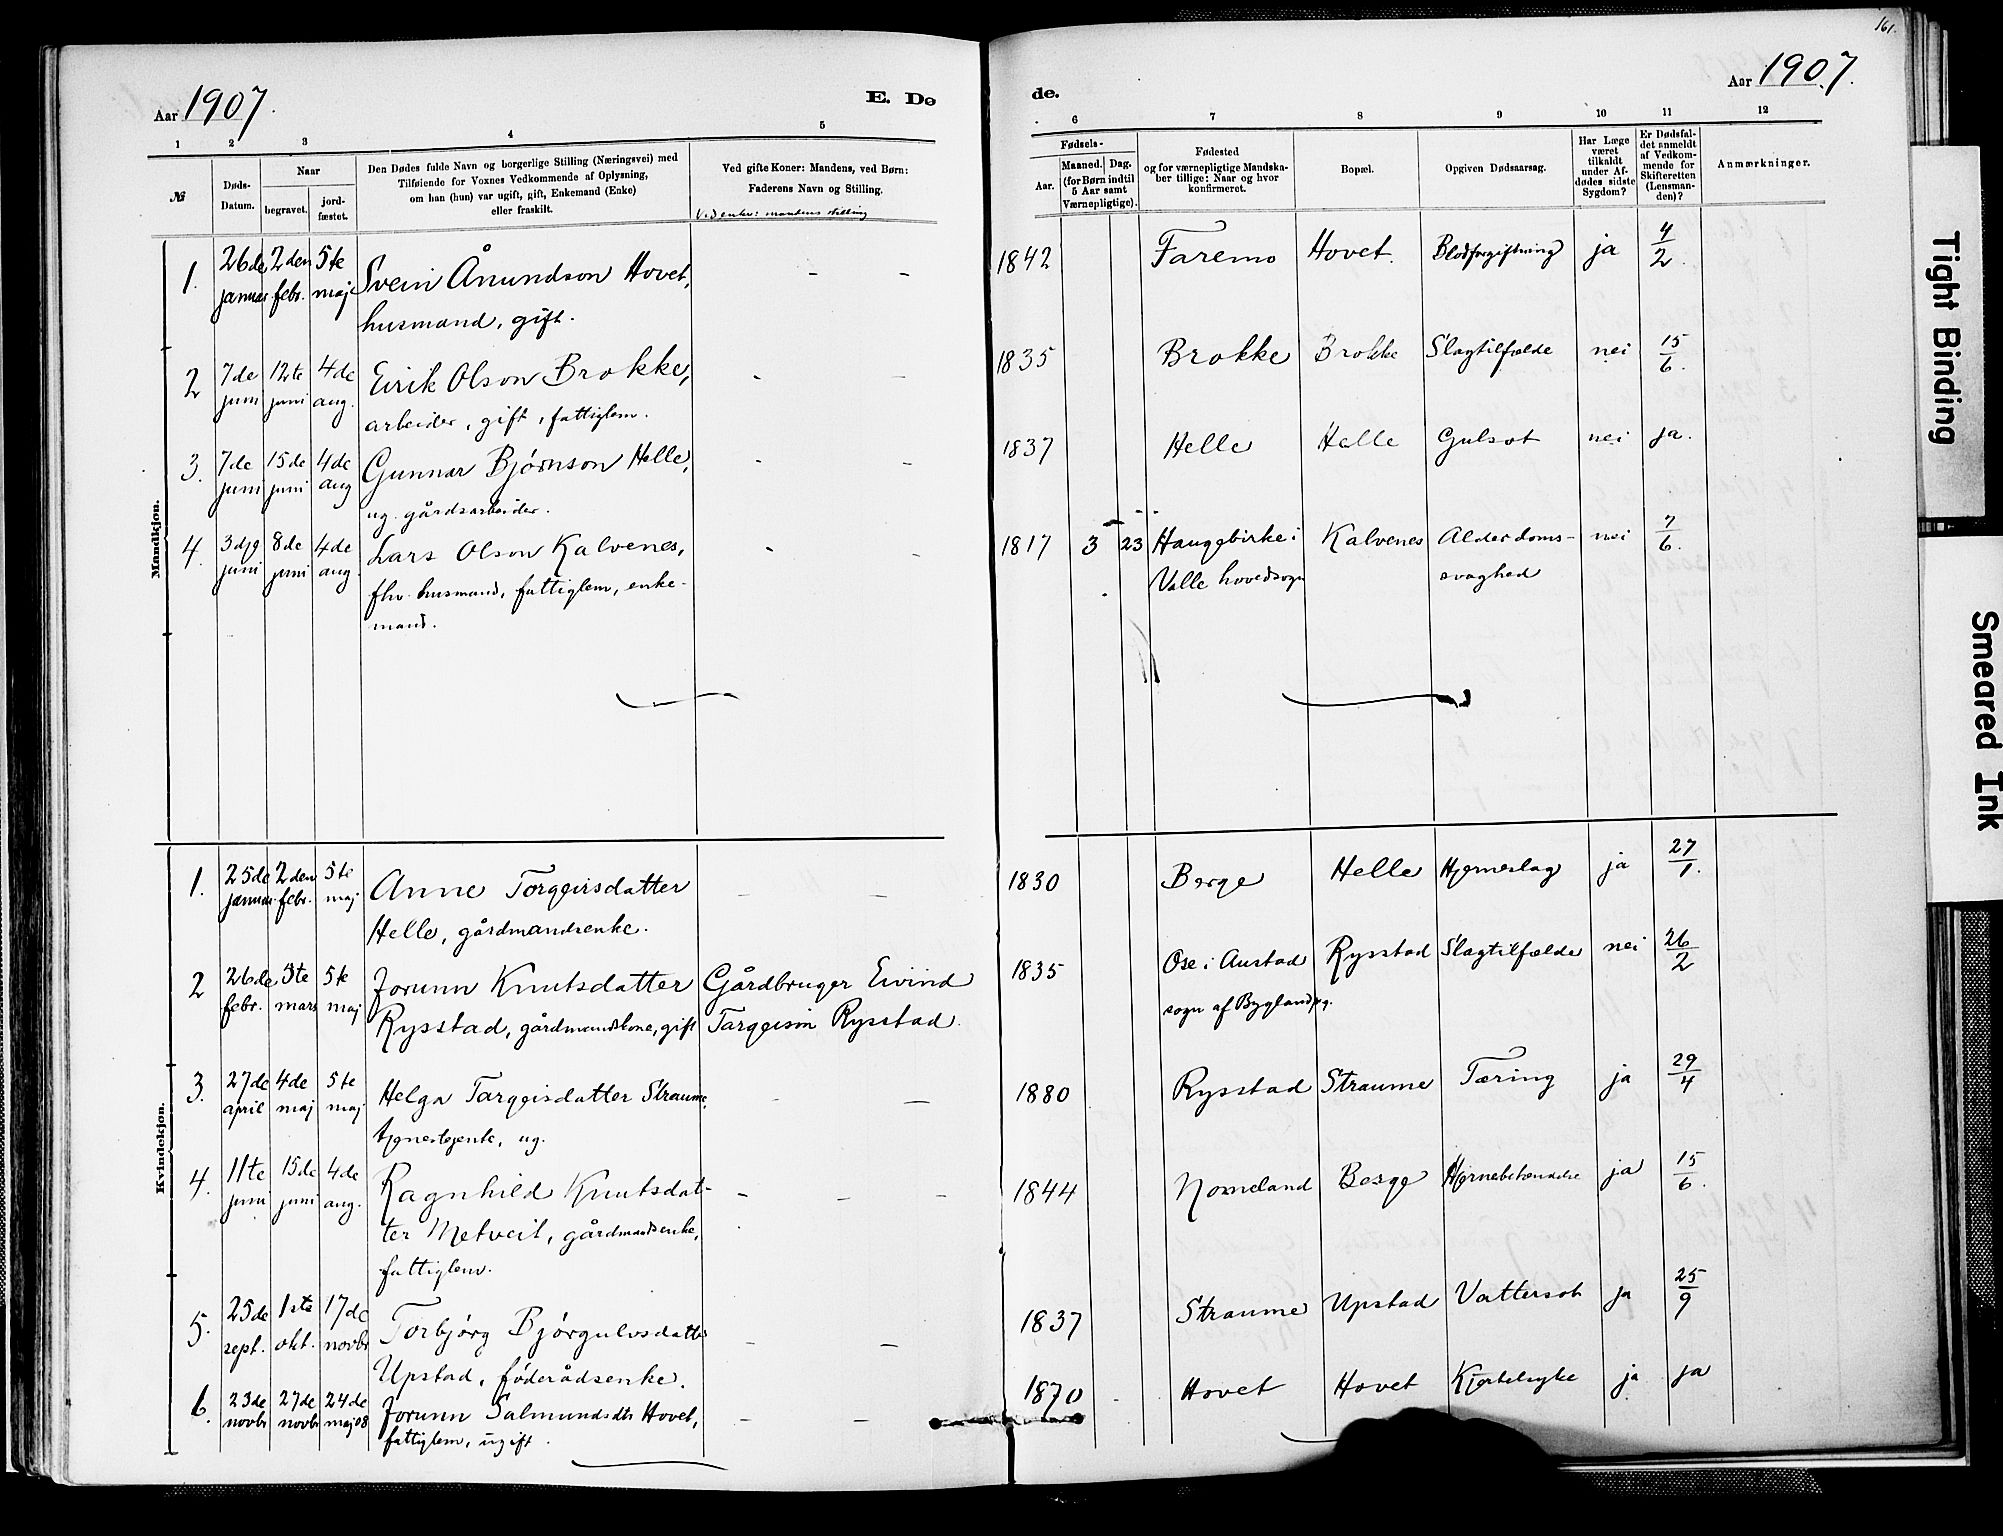 161.
Aar 1907.
E. Dø
de.
Aar 1907.
1 2 3 4 5
6 7 8 9 10 11 12
№
Døds-
Datum.
Naar
begravet.
jord-
fæstet.
Den Dødes fulde Navn og borgerlige Stilling (Næringsvei) med
Tilføiende for Voxnes Vedkommende af Oplysning,
om han (hun) var ugift, gift, Enkemand (Enke)
eller fraskilt.
Ved gifte Koner: Mandens, ved Børn:
Faderens Navn og Stilling.
Ved enker: mandens stilling
Fødsels-
Aar.
Maaned. Dag.
(for Børn indtil
5 Aar samt
Værnepligtige).
Fødested
og for værnepligtige Mandska-
ber tillige: Naar og hvor
konfirmeret.
Bopæl.
Opgiven Dødsaarsag.
Har Læge
været
tilkaldt
under Af-
dødes sidste
Sygdom?
Er Dødsfal-
det anmeldt
af Vedkom-
mende for
Skifteretten
(Lensman-
den)?
Anmærkninger.
Mandkjøn.
1. 26de januar 2den febr. 5te maj Svein Ånundson Hovet, - - 1842 Faremo Hovet. Blodforgiftning ja 4/2.
husmand, gift.
2 7de juni 12te juni 4de aug. Eirik Olson Brokke, - - 1835 Brokke Brokke Slagtilfælde nei 15/6.
arbeider, gift, fattiglem.
3. 7de juni 15de juni 4de aug Gunnar Bjørnson Helle, - - 1837 Helle Helle Gulsot nei ja.
ug. gårdsarbeider.
4. 3dje juni 8de juni 4de aug. Lars Olson Kalvenes, - - 1817 3 23 Haugebirke i Kalvenes Alderdoms- nei 7/6.
fhv. husmand, fattiglem, enke- Valle hovedsogn svaghed
mand.
Kvindekjøn.
1. 25de januar 2den febr. 5te maj Anne Torgeirsdatter - - 1830 Berge Helle Hjerneslag ja 27/1.
Helle, gårdmandsenke.
2 26de febr. 5te mars 5te maj Jorunn Knutsdatter Gårdbruger Eivind 1835 Ose i Austad Rysstad Slagtilfælde nei 26/2
Rysstad, gårdmandskone, gift Targeison Rysstad. sogn af Bygland pg.
3. 27de april 4de maj 5te maj Helga Targeisdatter Straume, - - 1880 Rysstad Straume Tæring ja 29/4
tjenestejente, ug.
4. 11te juni 15de juni 4de aug. Ragnhild Knutsdat- - - - 1844 Nomeland Berge Hjernebetændelse ja 15/6.
ter Metveit, gårdmandsenke,
fattiglem.
5. 25de sept. 1ste okt. 17de novbr Torbjørg Bjørgulvsdatter - - 1837 Straume Upstad Vattersot ja 25/9
Upstad, føderådsenke.
6. 23de novbr 27de novbr 24de maj 08 Jorunn Salmundsdtr Hovet, - - 1870 Hovet Hovet Kjertelsyke ja ja
fattiglem, ugift.
Tight Binding
Smeared Ink